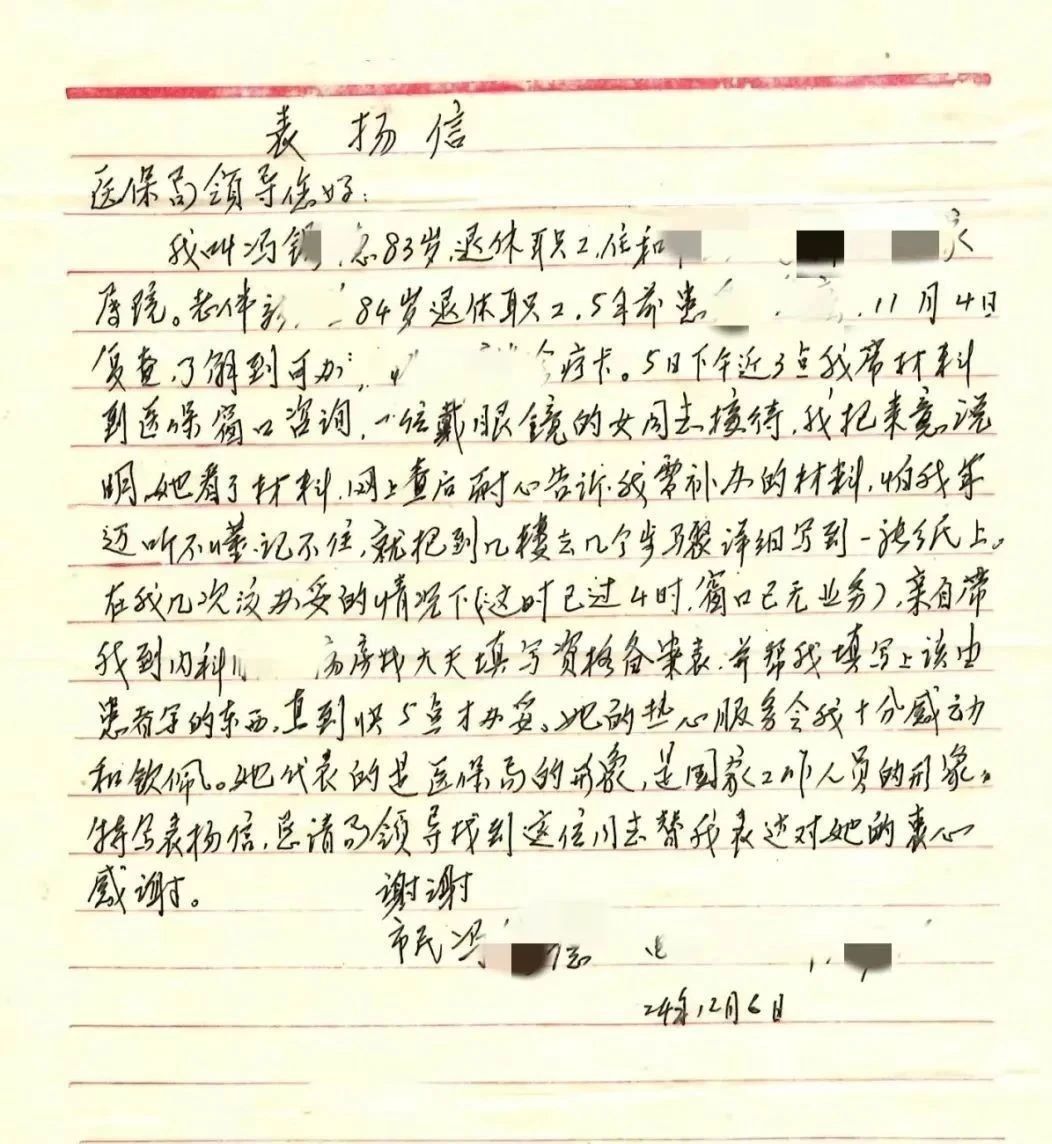 表扬信
医保局领导您好:
我叫冯 83岁,退休职工,住和 家
属院。老伴 84岁退休职工,5年前患 11月4日
复查,了解到可办 疗卡。5日下午近3点我带材料
到医保窗口咨询,一位戴眼镜的女同志接待,我把来意说
明,她看了材料,网上查后耐心告诉我需补办的材料,怕我年
迈听不懂、记不住,就把到几楼去几个步骤详细写到一张纸上。
在我几次没办妥的情况下(这时已过4时,窗口已无业务),亲自带
我到内科 病房找大夫填写资格备案表,并帮我填写上该由
患者写的东西,直到快5点才办妥。她的热心服务令我十分感动
和钦佩。她代表的是医保局的形象,是国家工作人员的形象。
特写表扬信,恳请局领导找到这位同志替我表达对她的衷心
感谢。 谢谢
市民冯
24年12月6日